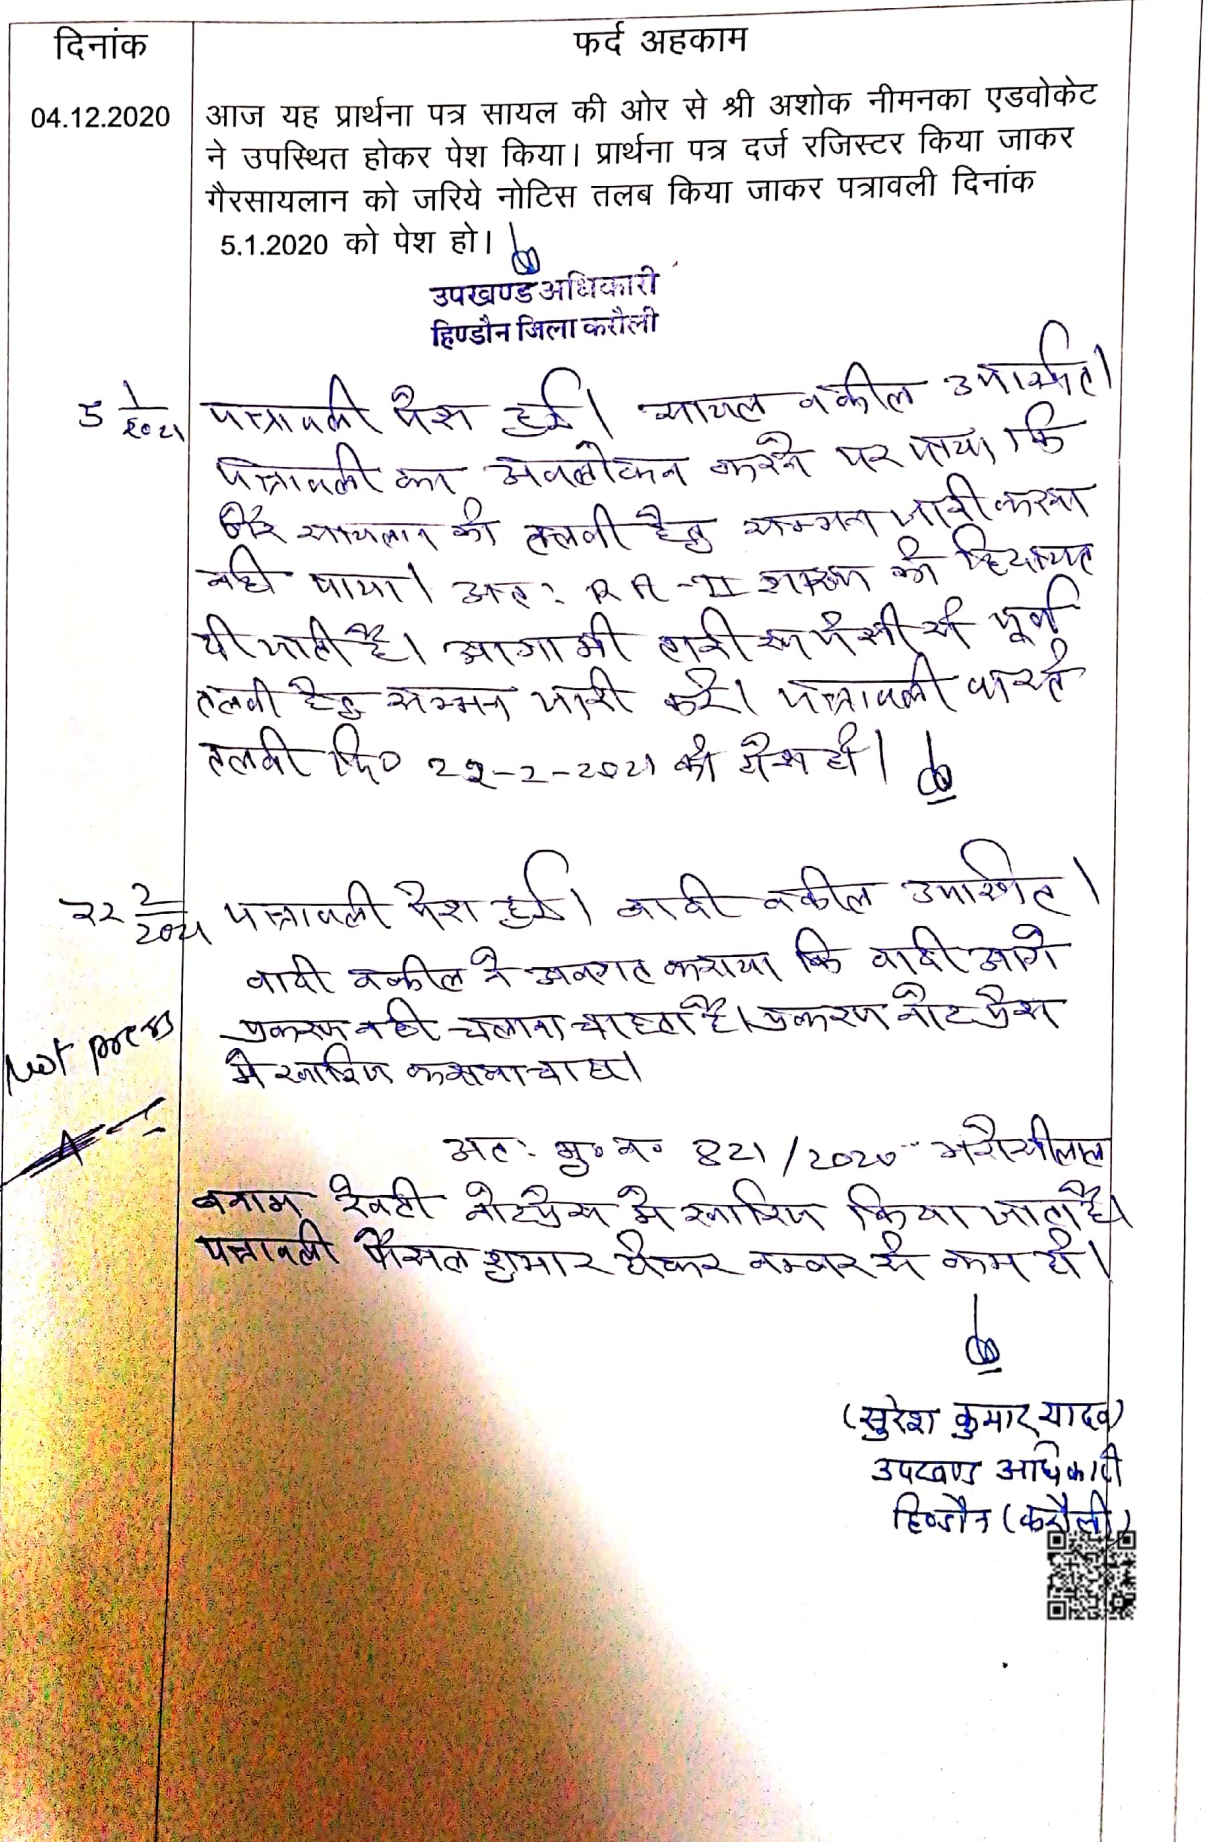 दिनांक फर्द अहकाम
04.12.2020 आज यह प्रार्थना पत्र सायल की ओर से श्री अशोक नीमनका एडवोकेट
ने उपस्थित होकर पेश किया। प्रार्थना पत्र दर्ज रजिस्टर किया जाकर
गैरसायलान को जरिये नोटिस तलब किया जाकर पत्रावली दिनांक
5.1.2020 को पेश हो।
उपखण्ड अधिकारी
हिण्डौन जिला करौली
5 1/2021 पत्रावली पेश हुई। सायल वकील उपस्थित।
पत्रावली का अवलोकन करने पर पाया कि
गैर सायलान की तलवी हेतु सम्मन जारी करना
नही पाया। अतः RA-II को हिदायत
दी जाती है। आगामी तारीख पेशी से पूर्व
तलवी हेतु सम्मन जारी करे। पत्रावली वास्ते
तलवी दि० 22-2-2021 को पेश हो।
22 2/2021 पत्रावली पेश हुई। वादी वकील उपस्थित।
वादी वकील ने अवगत कराया कि वादी आगे
प्रकरण नही चलाना चाहता है। प्रकरण नोटप्रेस
Not press
मे खारिज करवाना चाहा।
अतः मु० न० 821/2020 भरोसीलाल
बनाम रेवती नोटप्रेस मे खारिज किया जाता है।
पत्रावली फैसल शुमार होकर नम्बर से कम हो।
(सुरेश कुमार यादव)
उपखण्ड अधिकारी
हिण्डौन (करौली)